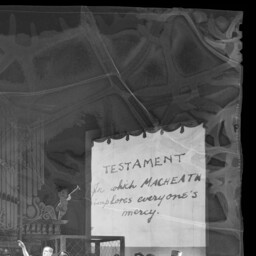 TESTAMENT
In which MACHEATH
implores everyone's
mercy.